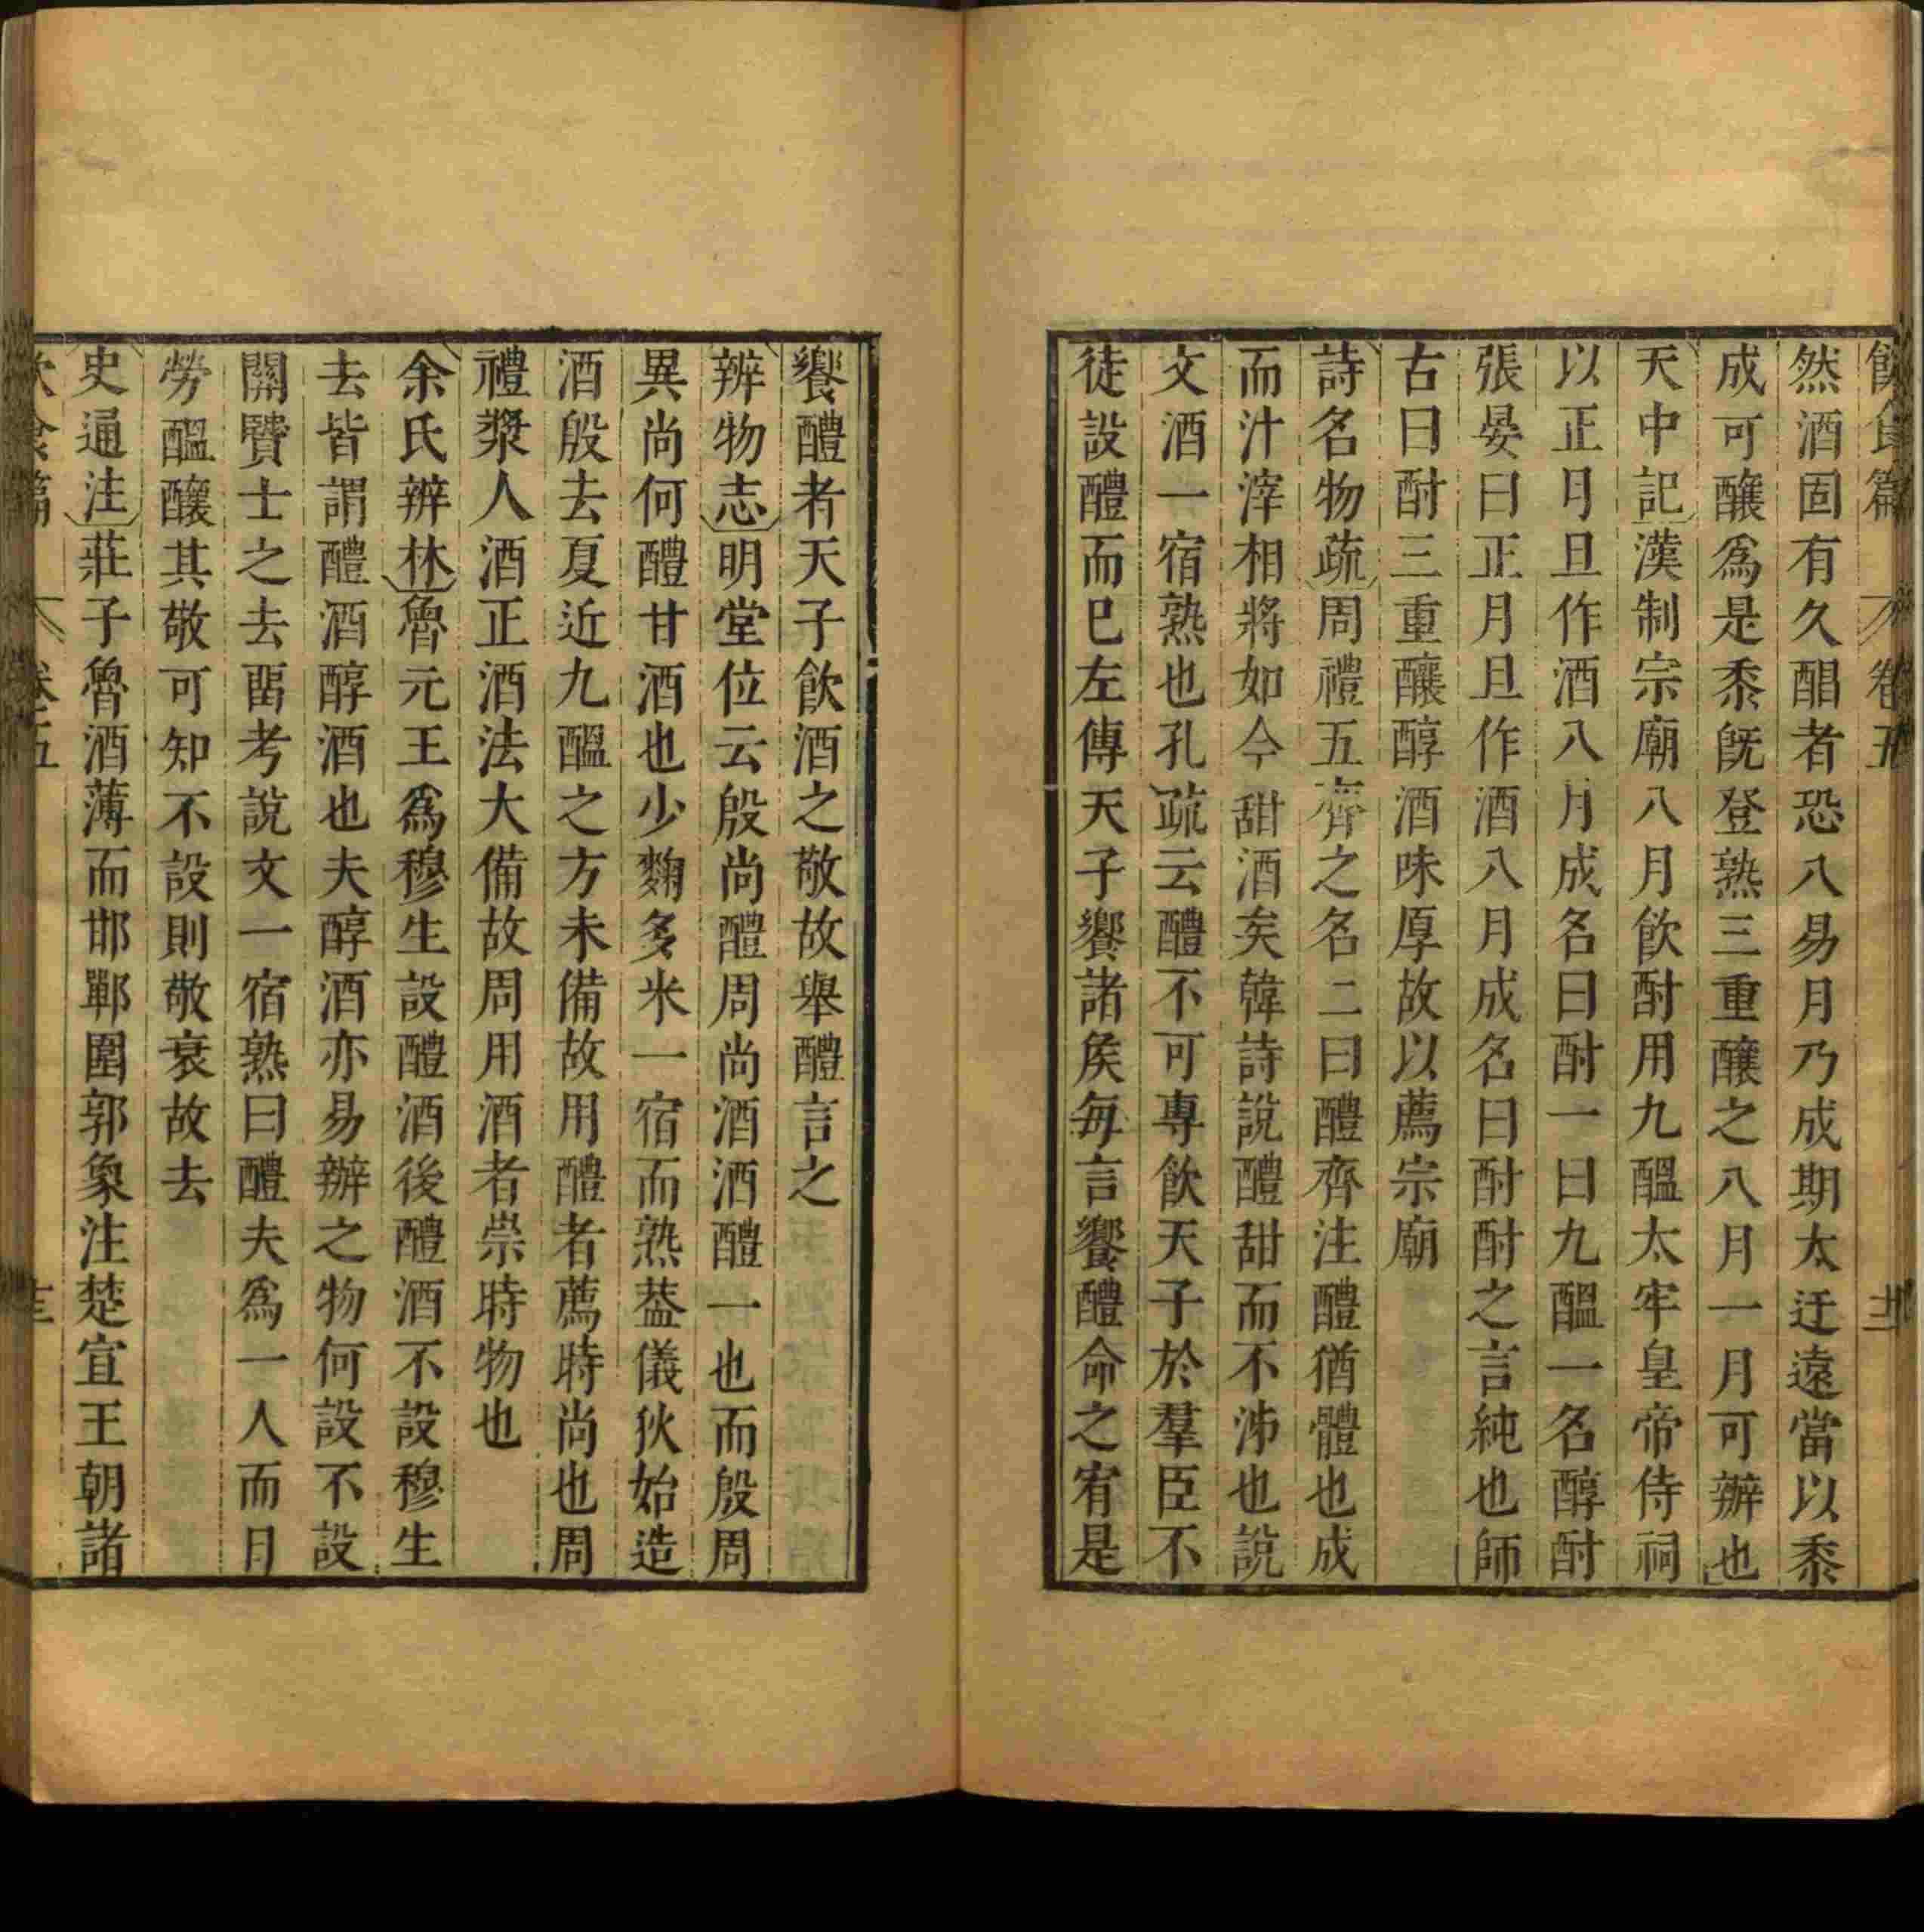 飲食篇 卷五 十二
然酒固有久醖者恐八易月乃成期太迂遠當以黍
成可釀爲是黍旣登熟三重釀之八月一月可辦也
天中記漢制宗廟八月飲酎用九醖太牢皇帝侍祠
以正月旦作酒八月成名曰酎一曰九醖一名醇酎
張晏曰正月旦作酒八月成名曰酎酎之言純也師
古曰酎三重釀醇酒味厚故以薦宗廟
詩名物疏周禮五齊之名二曰醴齊注醴猶體也成
而汁滓相將如今甜酒矣韓詩說醴甜而不沛也說
文酒一宿熟也孔疏云醴不可專飲天子於羣臣不
徒設醴而已左傳天子饗諸矦每言饗醴命之宥是
饗醴者天子飲酒之敬故舉醴言之
辨物志明堂位云殷尚醴周尚酒酒醴一也而殷周
異尚何醴甘酒也少麴多米一宿而熟葢儀狄始造
酒殷去夏近九醖之方未備故用醴者薦時尚也周
禮漿人酒正酒法大備故周用酒者崇時物也
余氏辨林魯元王爲穆生設醴酒後醴酒不設穆生
去皆謂醴酒醇酒也夫醇酒亦易辦之物何設不設
關賢士之去畱考說文一宿熟曰醴夫爲一人而日
勞醖釀其敬可知不設則敬衰故去
史通注莊子魯酒薄而邯鄲圍郭象注楚宣王朝諸
飲食篇 卷五 十三